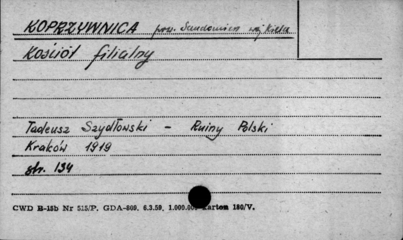 KOPRZYWNICA pow. Sandomierz woj Kielce
Kościół filialny
Tadeusz Szydłowski - Ruiny Polski
Kraków 1919
str. 134
CWD B-15b Nr 515/P. GDA-860. 6.3.50. 1.000.00 karten 180/V.